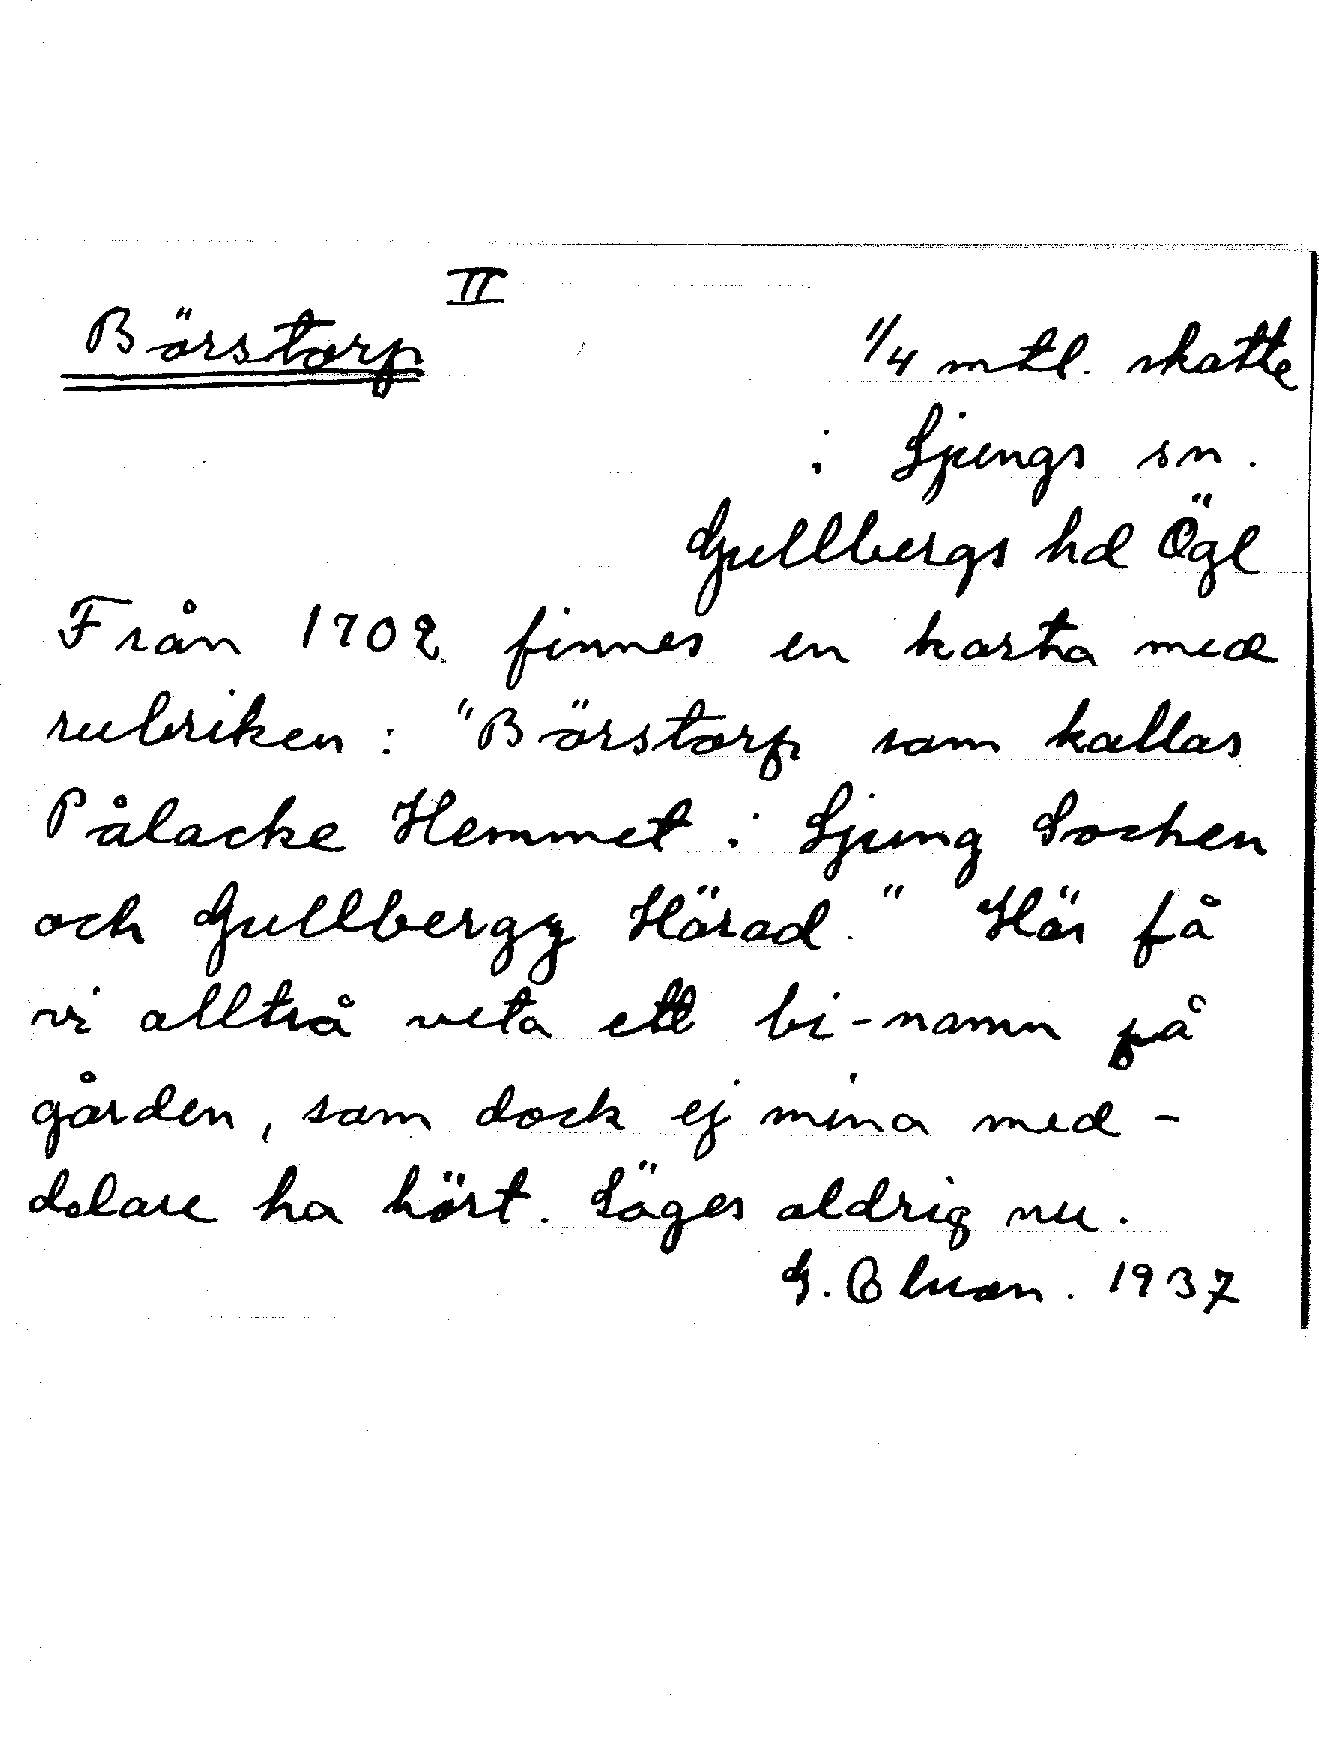 II
Börstorp
1/4 mtl. skatte
i Ljungs sn.
Gullbergs hd Ögl
Från 1702 finnes en karta med
rubriken: "Börstorp som kallas
Pålacke Hemmet i Ljung Sochen
och Gullbergz Härad." Här få
vi alltså veta ett bi-namn på
gården, som dock ej mina med-
delare ha hört. Säges aldrig nu.
G. 1937